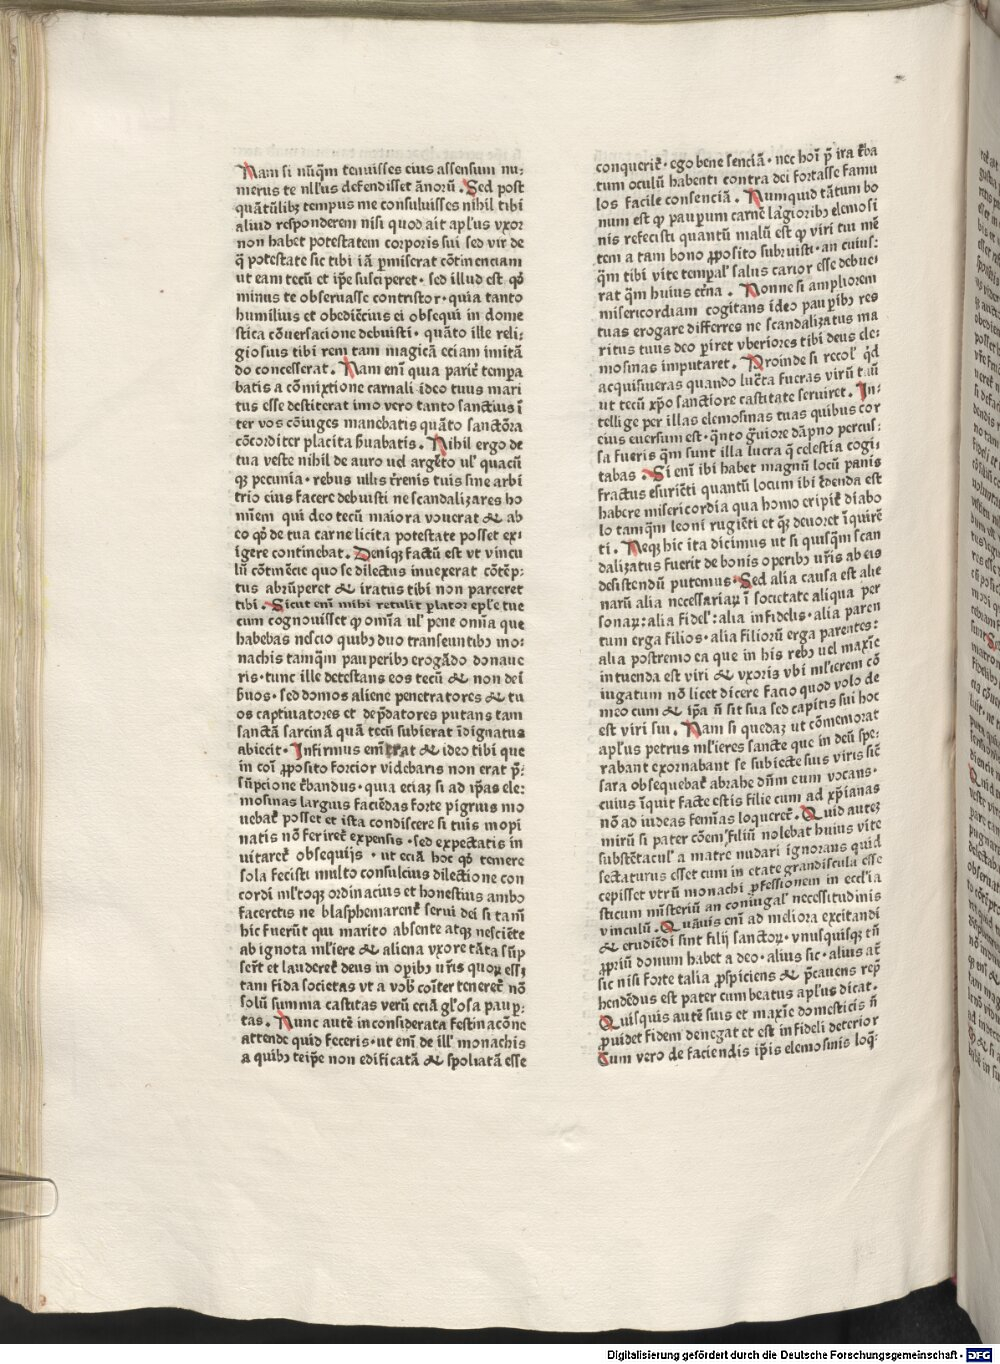 Nam si nūq̄m tenuisses eius assensum nu⸗
merus te nll'us defendisset ānorū. Sed post
quātūlibꝫ tempus me consuluisses nihil tibi
aliud responderem nisi quod ait apl'us vxor
non habet potestatem corporis sui sed vir de
q̄ potestate sic tibi iā ꝑmiserat cōtinenciam
ut eam tecū et ip̄e susciperet· sed illud est qꝫ
minus te obseruasse contristor· quia tanto
humilius et obediēcius ei obsequi in dome
stica cōuersacione debuisti· quāto ille reli⸗
giosius tibi rem tam magicā eciam imitā
do concesserat. Nam eni qua parit' tempa
batis a cōmixtione carnali ideo tuus mari
tus esse destiterat imo vero tanto sanctius ī
ter vos cōiuges manebatis quāto sanctōra
cōcorditer placita ẜuabatis. Nihil ergo de
tua veste nihil de auro uel argēto ul' quacū
qꝫ pecunia· rebus ullis t'renis tuis sine arbi
trio eius facere debuisti ne scandalizares ho
mīem qui deo tecū maiora vouerat & ab
eo qꝫ de tua carne licita potestate posset ex⸗
igere continebat. Deniqꝫ factū est vt vincu
lū cōtinēcie quo se dilectus inuexerat cōtēp⸗
tus abrūperet & iratus tibi non parceret
tibi. Sicut eni mihi retulit plator epl'e tue
cum cognouisset ꝙ omīa ul' pene omīa que
habebas nescio quibꝫ duo transeuntibꝫ mo⸗
nachis tamq̄m pauperibꝫ erogādo donaue
ris· tunc ille detestans eos tecū & non dei
ẜuos· sed domos aliene penetratores & tu
os captiuatores et dep̄datores putans tam
sanctā sarcinā quā tecū subierat īdignatus
abiecit· Infirmus eni erat & ideo tibi que
in coī ꝓposito forcior videbaris non erat p̄⸗
sūpcione t'bandus· quia eciaꝫ si ad ip̄as ele⸗
mosinas largius faciēdas forte pigrius mo
uebat' posset et ista condiscere si tuis inopi
natis nō feriret' expensis· sed expectatis in
uitaret' obsequijs· ut eciā hoc qꝫ temere
sola fecisti multo consulcius dilectione con
cordi ml'toqꝫ ordinacius et honestius ambo
faceretis ne blasphemarent' serui dei si tam̄
hic fuerūt qui marito absente atqꝫ nesciēte
ab ignota ml'iere & aliena vxore tāta sūp
ser̄t et lauderet' deus in oꝑibꝫ ur̄is quoꝝ essꝫ
tam fida societas vt a vob' cōiter teneret' nō
solū summa castitas verū eciā gl'osa paup⸗
tas. Nunc autē inconsiderata festinacōne
attende quid feceris· ut eni de ill' monachis
a quibꝫ teip̄e non edificatā & spoliatā esse
conquerit'· ego bene senciā· nec hoī p̄ ira t'ba
tum oculū habenti contra dei fortasse famu
los facile consenciā. Nunquid tātum bo
num est ꝙ pauꝑum carnē lāgioribꝫ elemosi
nis refecisti quantū malū est ꝙ viri tui mē
tem a tam bono ꝓposito subruisti· an cuius⸗
q̄m tibi vite tempal' salus carior esse debue⸗
rat q̄m huius et'na. Nonne si ampliorem
misericordiam cogitans ideo pauꝑibꝫ res
tuas erogare differres ne scandalizatus ma
ritus tuus deo ꝑiret vberiores tibi deus ele⸗
mosinas imputaret. Proinde si recol' q̄d
acquisiueras quando luc'ta fueras virū tuū
ut tecū xp̄o sanctiore castitate seruiret. In⸗
tellige per illas elemosinas tuas quibus cor
eius euersum est· q̄nto g̈uiore dāpno percus⸗
sa fueris q̄m sunt illa lucra q̄ celestia cogi⸗
tabas. Si eni ibi habet magnū locū panis
fractus esuriēti quantū locum ibi t'denda est
habere misericordia qua homo eripit' diabo
lo tamq̄m leoni rugiēti et q̄ꝫ deuoret īquirē
ti. Neqꝫ hic ita dicimus ut si quisq̄m scan
dalizatus fuerit de bonis operibꝫ ur̄is ab eis
desistendū putemus· Sed alia causa est alie
narū alia necessariaꝝ ī societate aliqua per
sonaꝝ: alia fidel': alia infidelis· alia paren
tum erga filios· alia filiorū erga parentes:
alia postremo ea que in his rebꝫ uel maxīe
intuenda est viri & vxoris vbi ml'ierem cō
iugatum nō licet dicere facio quod volo de
meo cum & ip̄a n̄ sit sua sed capitis sui hoc
est viri sui. Nam si quedaꝫ ut cōmemorat
apl'us petrus ml'ieres sancte que in deū spe⸗
rabant exornabant se subiecte suis viris sic̄
sara obsequebat' abrahe dn̄m eum vocans·
cuius īquit facte estis filie cum ad xp̄ianas
nō ad iudeas fem̄as loqueret'. Quid auteꝫ
mirū si pater cōem filiū nolebat huius vite
substētacul' a matre nudari ignorans quid
sectaturus esset cum in etate grandiscula esse
cepisset vtrū monachi ꝓfessionem in eccl'ia
sticum mīsteriū an coniugal' necessitudinis
vinculū. Quāuis eni ad meliora excitandi
& erudiēdi sint filij sanctoꝝ· vnusquisqꝫ tn̄
ꝓpriū donum habet a deo· alius sic· alius at̄
sic nisi forte talia ꝓspiciens & p̄cauens rep̄
hendēdus est pater cum beatus apl'us dicat.
Quisquis autē suis et maxīe domesticis n̄
ꝓuidet fidem denegat et est infideli deterior
Cum vero de faciendis ip̄is elemosinis loqꝫ⸗
Digitalisierung gefördert durch die Deutsche Forschungsgemeinschaft - DFG